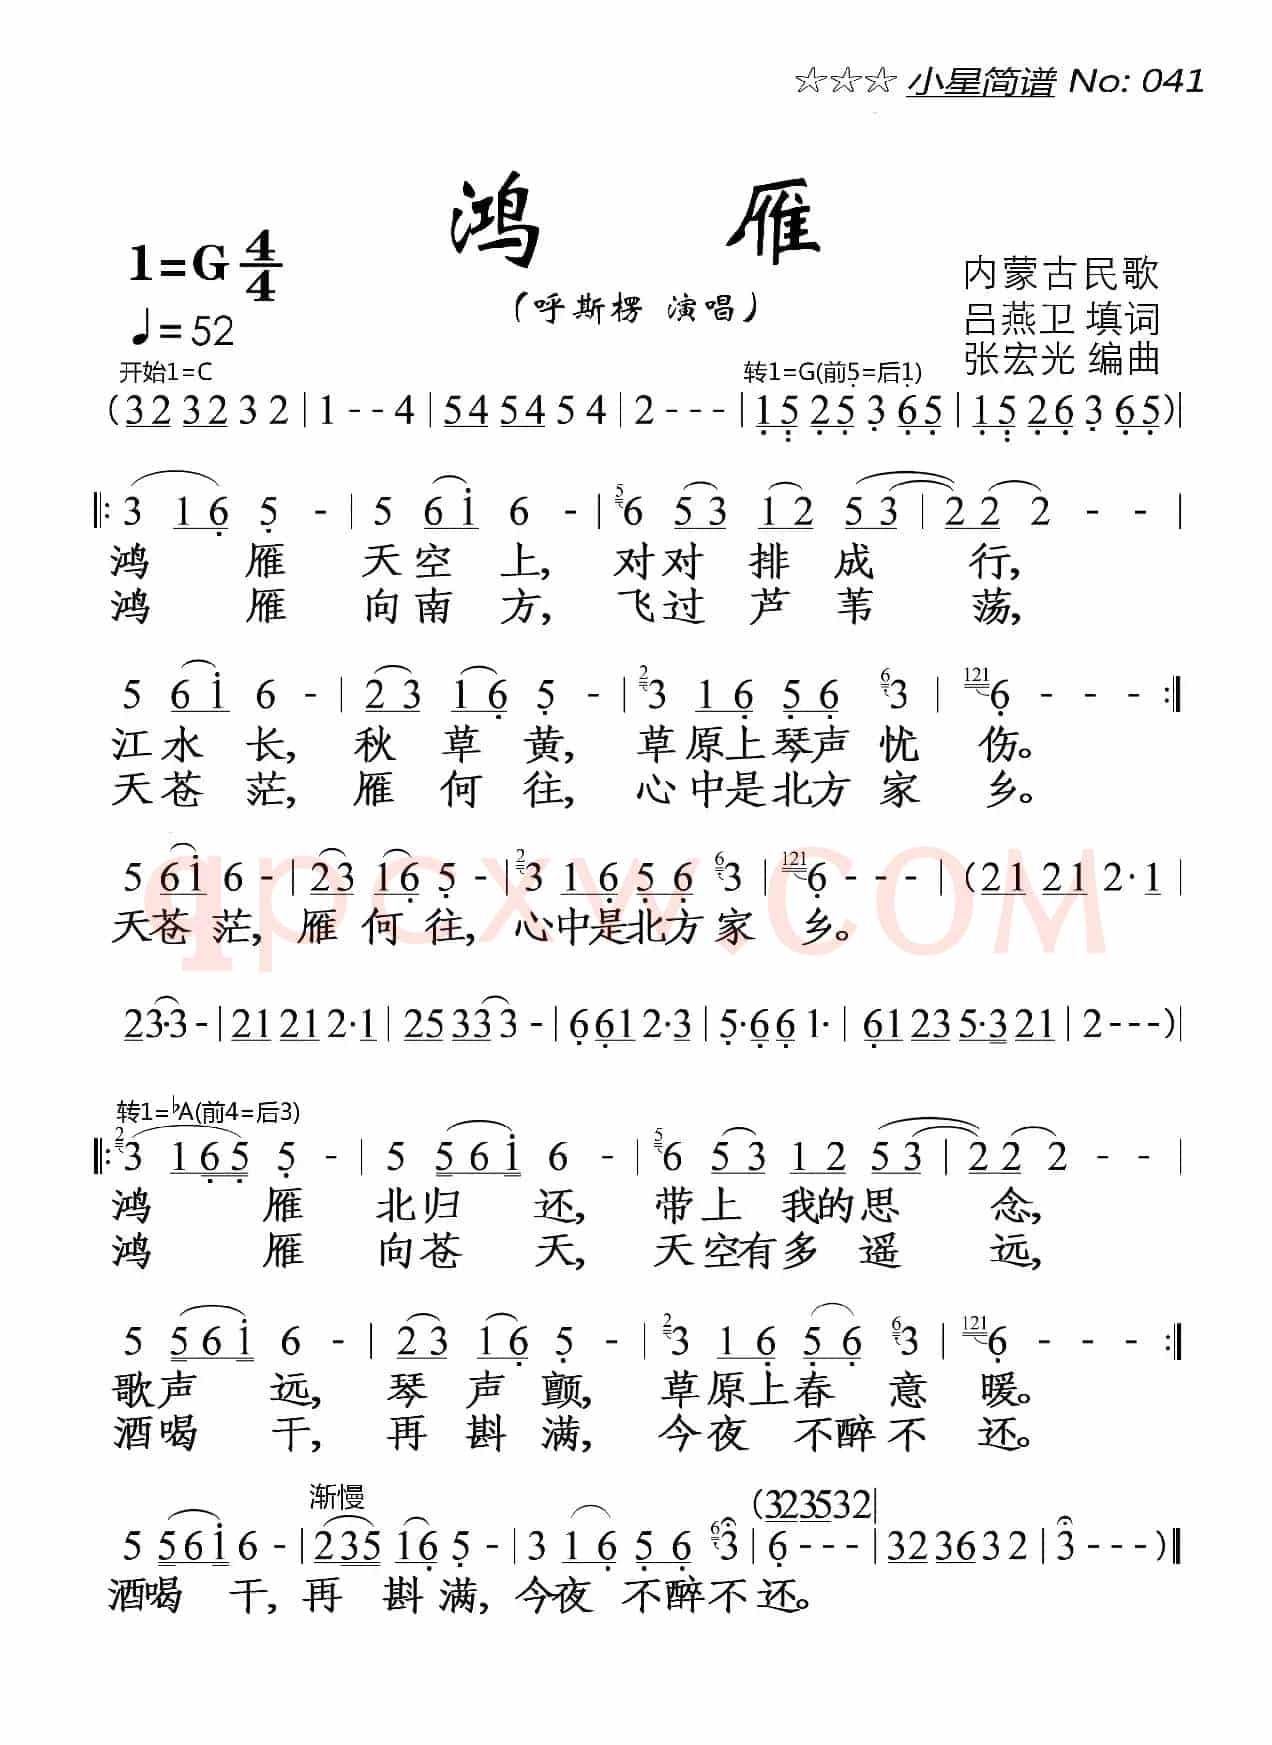 ☆☆☆ 小星简谱 No: 041
鸿 雁
1=G 4/4
(呼斯楞 演唱)
内蒙古民歌
♩=52
吕燕卫 填词
张宏光 编曲
开始1=C 转1=G(前5=后1)
(32 32 3 2 | 1 - - 4 | 54 54 5 4 | 2 - - - | 15 25 3 65 | 15 26 3 65 )|
‖: 3 16 5 - | 5 61 6 - | 5 6 53 12 53 | 22 2 - - |
鸿 雁 天空 上, 对对 排 成 行,
鸿 雁 向南 方, 飞过 芦 苇 荡,
5 61 6 - | 23 16 5 - | 2 3 16 56 6 3 | 121 6 - - - :‖
江水 长, 秋 草 黄, 草原上琴声 忧 伤。
天苍 茫, 雁 何 往, 心中是北方 家 乡。
5 61 6 - | 23 16 5 - | 2 3 16 56 6 3 | 121 6 - - - | (21 21 2·1 |
天苍 茫, 雁 何 往, 心中是北方 家 乡。
qpcxw.COM
23·3 - | 21 21 2·1 | 25 33 3 - | 6 61 2·3 | 5·6 6 1· | 61 23 5·3 21 | 2 - - - )|
转1=♭A(前4=后3)
‖: 2 3 165 5 - | 5 561 6 - | 5 6 53 12 53 | 22 2 - - |
鸿 雁 北归 还, 带上 我的思 念,
鸿 雁 向苍 天, 天空有多遥 远,
5 561 6 - | 23 16 5 - | 2 3 16 56 6 3 | 121 6 - - - :‖
歌声 远, 琴 声 颤, 草原上春 意 暖。
酒喝 干, 再 斟 满, 今夜 不醉不 还。
渐慢 (323532|
5 561 6 - | 235 16 5 - | 3 16 5 6 6 3 | 6 - - - | 32 36 3 2 | 3 - - - )‖
酒喝 干, 再 斟 满, 今夜 不醉不 还。